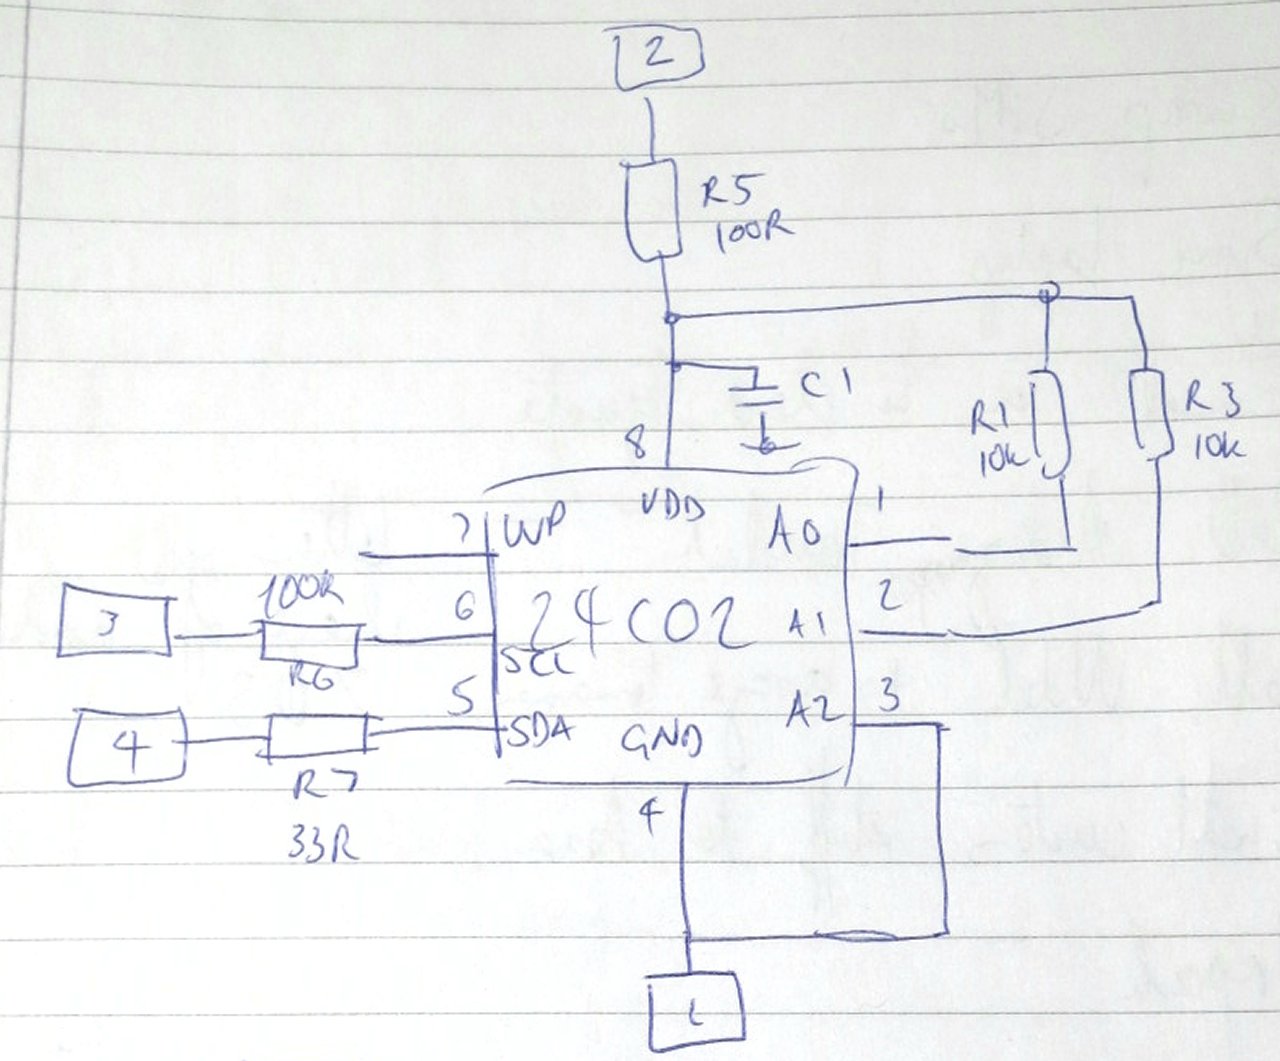 2
R5
100R
C1
R1
10k
R3
10k
8
VDD
7
WP
A0
1
3
100R
R6
6
24C02
SCL
A1
2
4
R7
33R
5
SDA
GND
A2
3
4
1